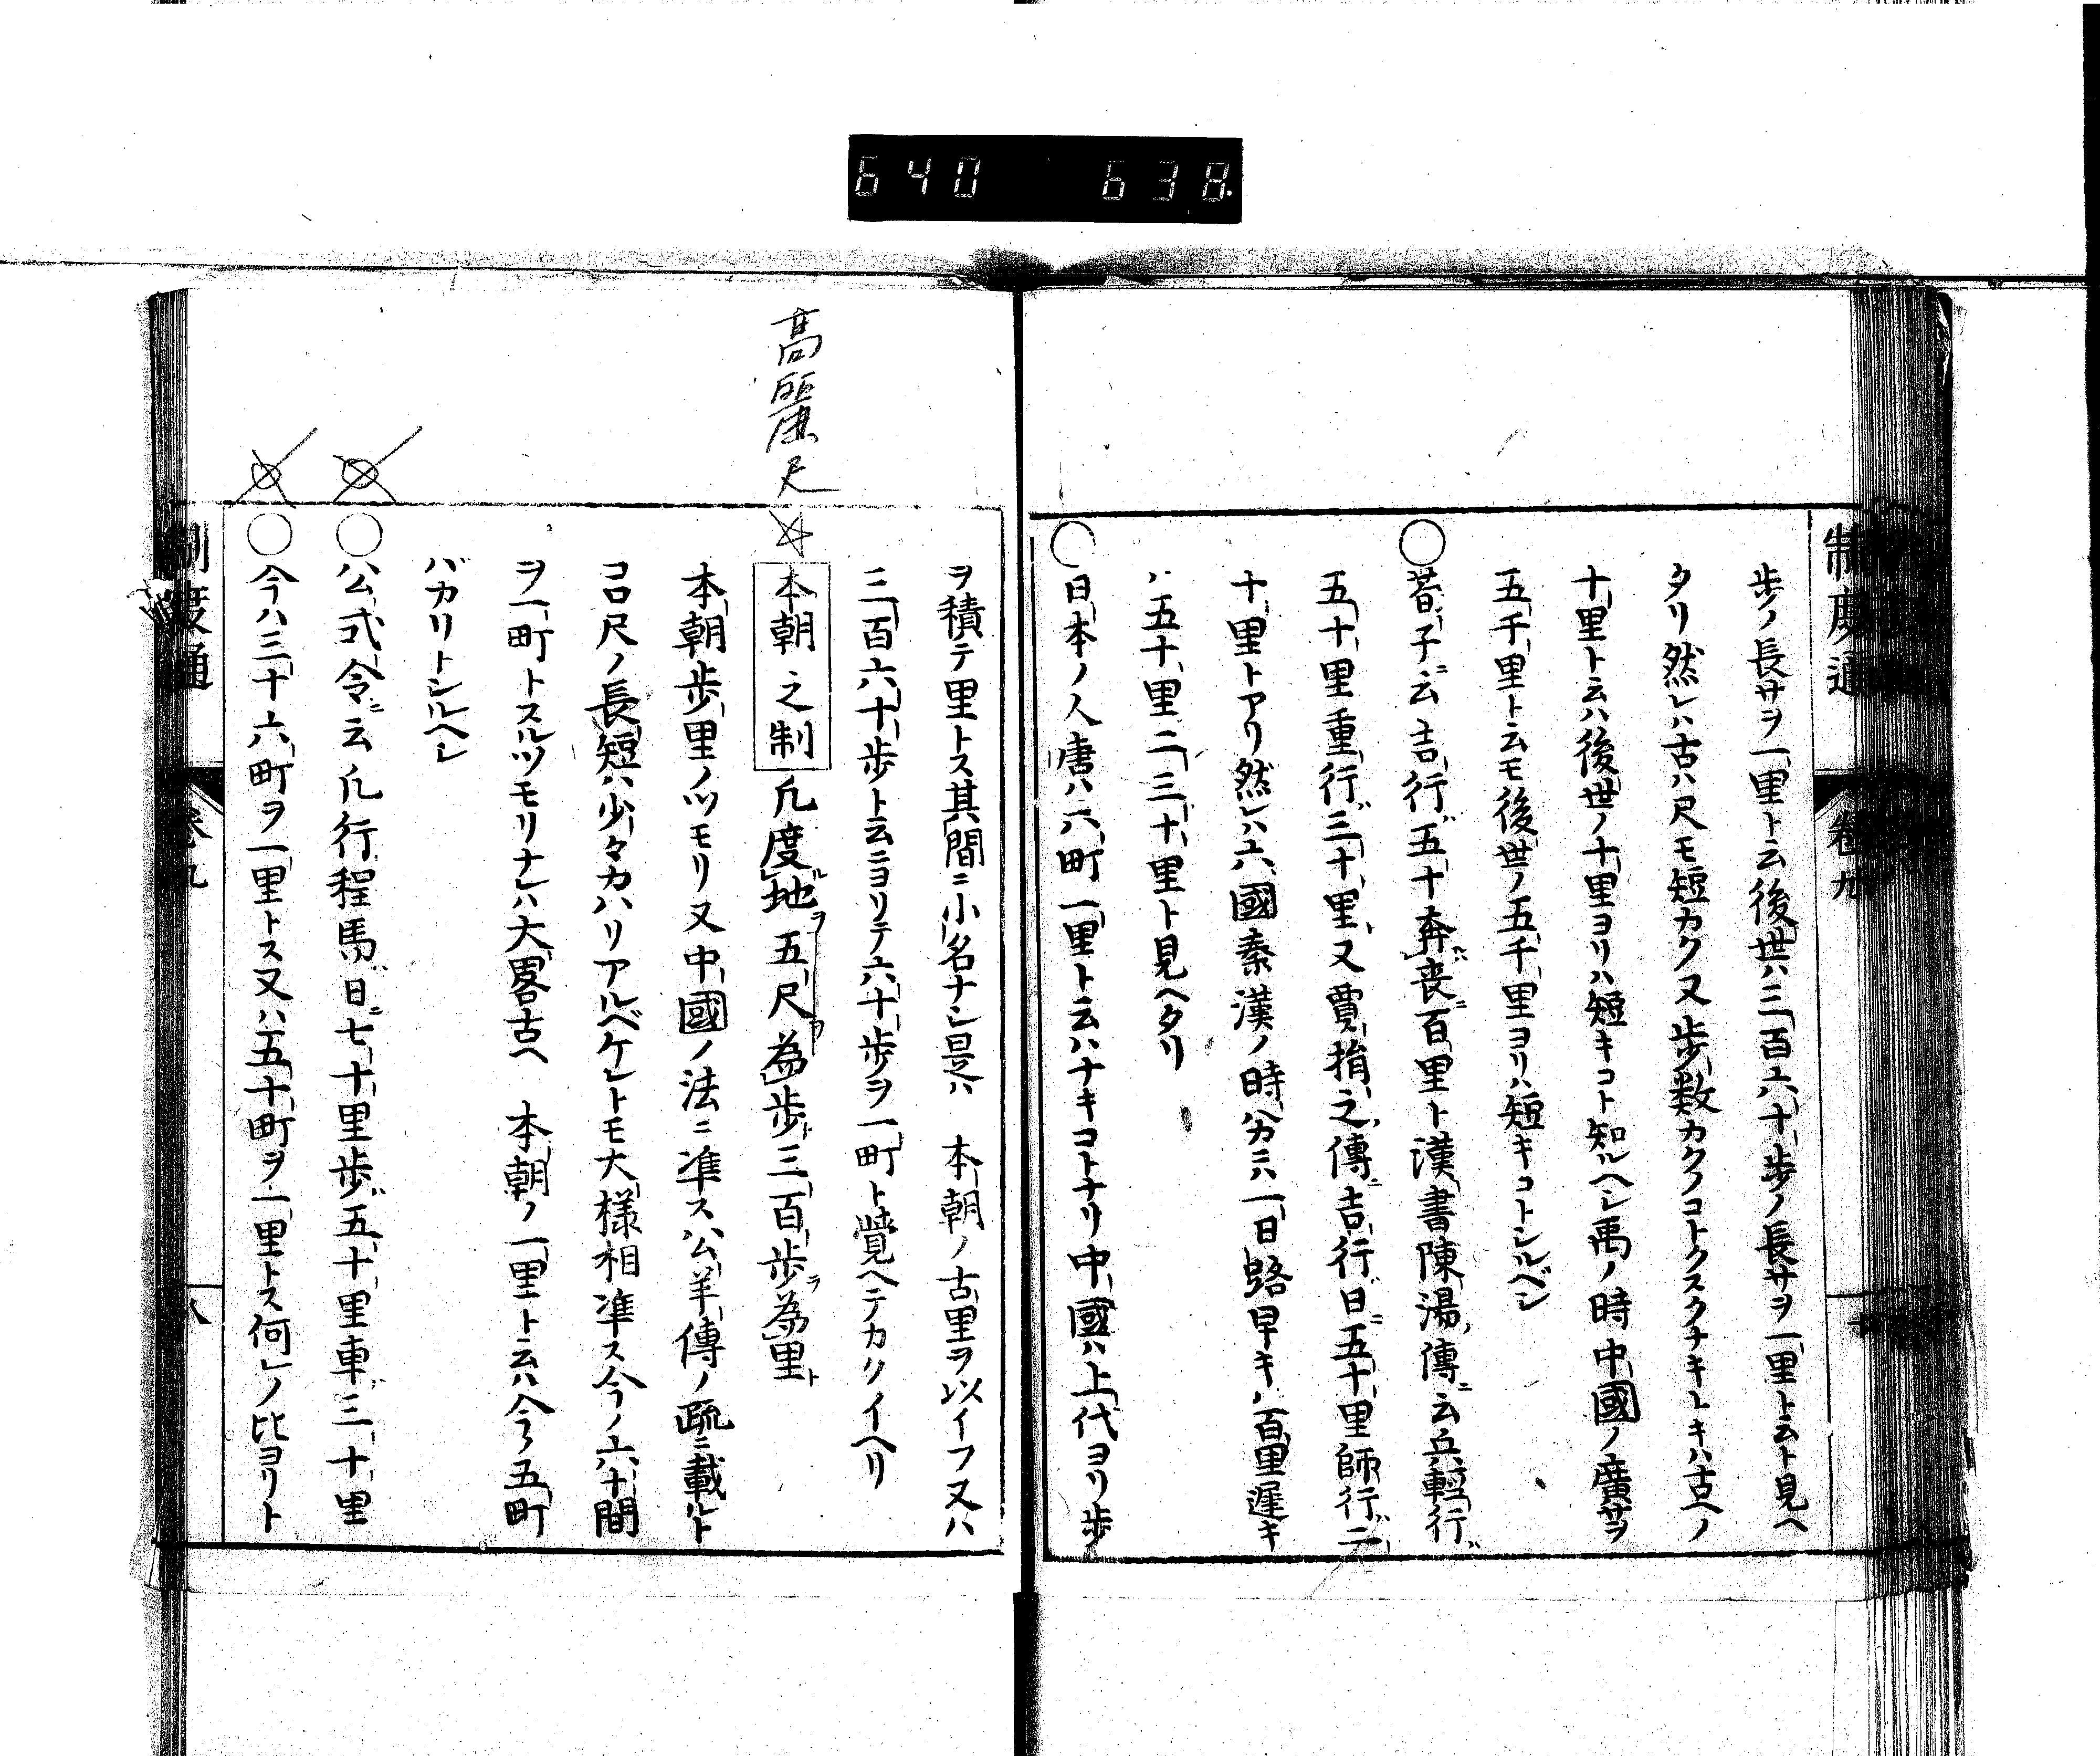 640 638
制度通 卷九
歩ノ長サヲ一里ト云後世ハ三百六十歩ノ長サヲ一里ト云ト見ヘ
タリ然レハ古ハ尺モ短カク又歩数カクノコトクスクナキトキハ古ヘノ
十里ト云ハ後世ノ十里ヨリハ短キコト知ルヘシ禹ノ時中國ノ廣サヲ
五千里ト云モ後世ノ五千里ヨリハ短キコトシルベシ
○荀子ニ云吉行五十奔喪百里ト漢書陳湯傳ニ云兵輕行
五十里重行三十里又賈捐之傳ニ吉行日ニ五十里師行二
十里トアリ然レハ六國秦漢ノ時分カミハ一日路早キハ百里遅キ
ハ五十里二三十里ト見ヘタリ
○日本ノ人唐ハ六町一里ト云ハナキコトナリ中國ハ上代ヨリ歩
ヲ積テ里トス其間ニ小名ナシ是ハ 本朝ノ古里ヲ以イフ又ハ
三百六十歩ト云ニヨリテ六十歩ヲ一町ト覺ヘテカクイヘリ
高麗尺
本朝之制 凡度地ヲ五尺ヲ為歩ト三百歩ヲ為里ト
本朝歩里ノツモリ又中國ノ法ニ準ス公羊傳ノ疏ニ載ルト
コロ尺ノ長短ハ少々カハリアルベケレトモ大様相準ス今ノ六十間
ヲ一町トスルツモリナレハ大畧古ヘ 本朝ノ一里ト云ハ今ノ五町
バカリトシルヘシ
○公式令ニ云凡行程馬日ニ七十里歩五十里車三十里
○今ハ三十六町ヲ一里トス又ハ五十町ヲ一里トス何レノ比ヨリト
制度通 卷九 八